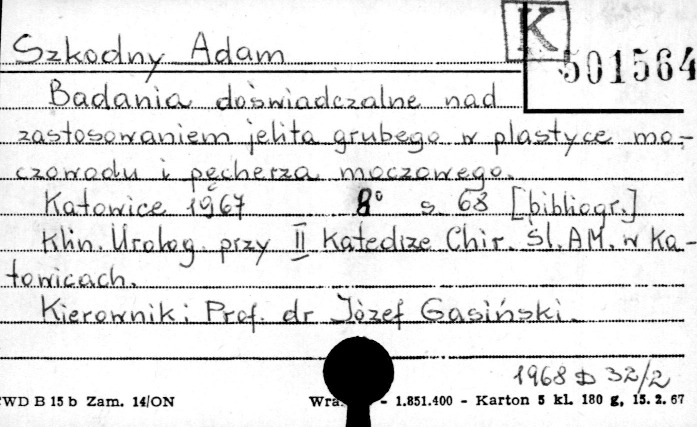 K
Szkodny Adam
501564
Badania doświadczalne nad
zastosowaniem jelita grubego w plastyce mo-
czowodu i pęcherza moczowego.
Katowice 1967 8° s. 68 [bibliogr.]
Klin. Urolog. przy II Katedrze Chir. Śl. A.M. w Ka-
towicach.
Kierownik: Prof. dr Józef Gasiński.
1968 D 32/2
CWD B 15 b Zam. 14/ON - 1.851.400 - Karton 5 kl. 180 g, 15. 2. 67